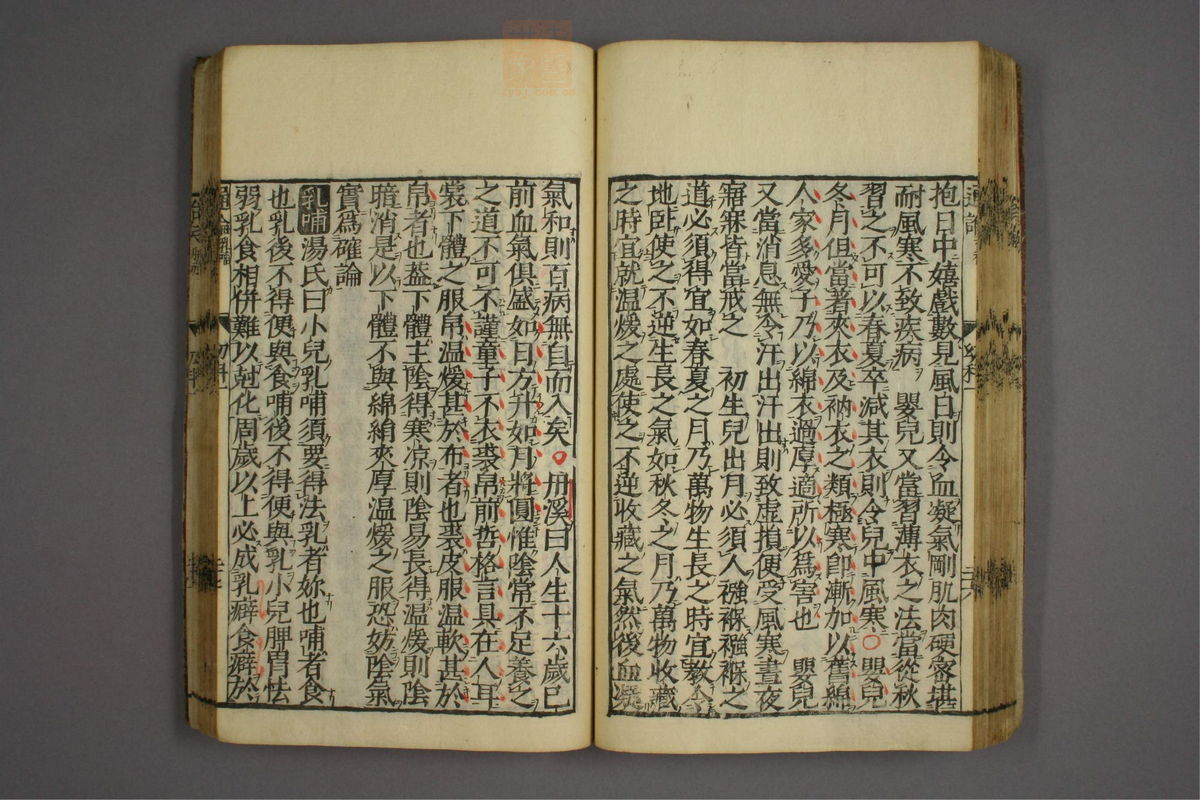 抱日中嬉戲數見風日則令血凝氣剛肌肉硬密堪
耐風寒不致疾病　嬰兒又當習薄衣之法當從秋
習之不可以春夏卒減其衣則令兒中風寒○嬰兒
冬月但當著夾衣及衲衣之類極寒卽漸加以舊綿
人家多愛子乃以綿衣過厚適所以爲害也　嬰兒
又當消息無令汗出汗出則致虛損便受風寒晝夜
寤寐皆當戒之　初生兒出月必須入襁褓襁褓之
道必須得宜如春夏之月乃萬物生長之時宜教令
地臥使之不逆生長之氣如秋冬之月乃萬物收藏
之時宜就温煖之處使之不逆收藏之氣然後血凝
氣和則百病無自而入矣○丹溪曰人生十六歲已
前血氣俱盛如日方升如月將圓惟陰常不足養之
之道不可不謹童子不衣裘帛前哲格言具在人耳
裳下體之服帛温煖甚於布者也裘皮服温軟甚於
帛者也蓋下體主陰得寒凉則陰易長得温煖則陰
暗消是以下體不與綿綃夾厚温煖之服恐妨陰氣
實爲確論
乳哺　湯氏曰小兒乳哺須要得法乳者妳也哺者食
也乳後不得便與食哺後不得便與乳小兒脾胃怯
弱乳食相併難以尅化周歲以上必成乳癖食癖於